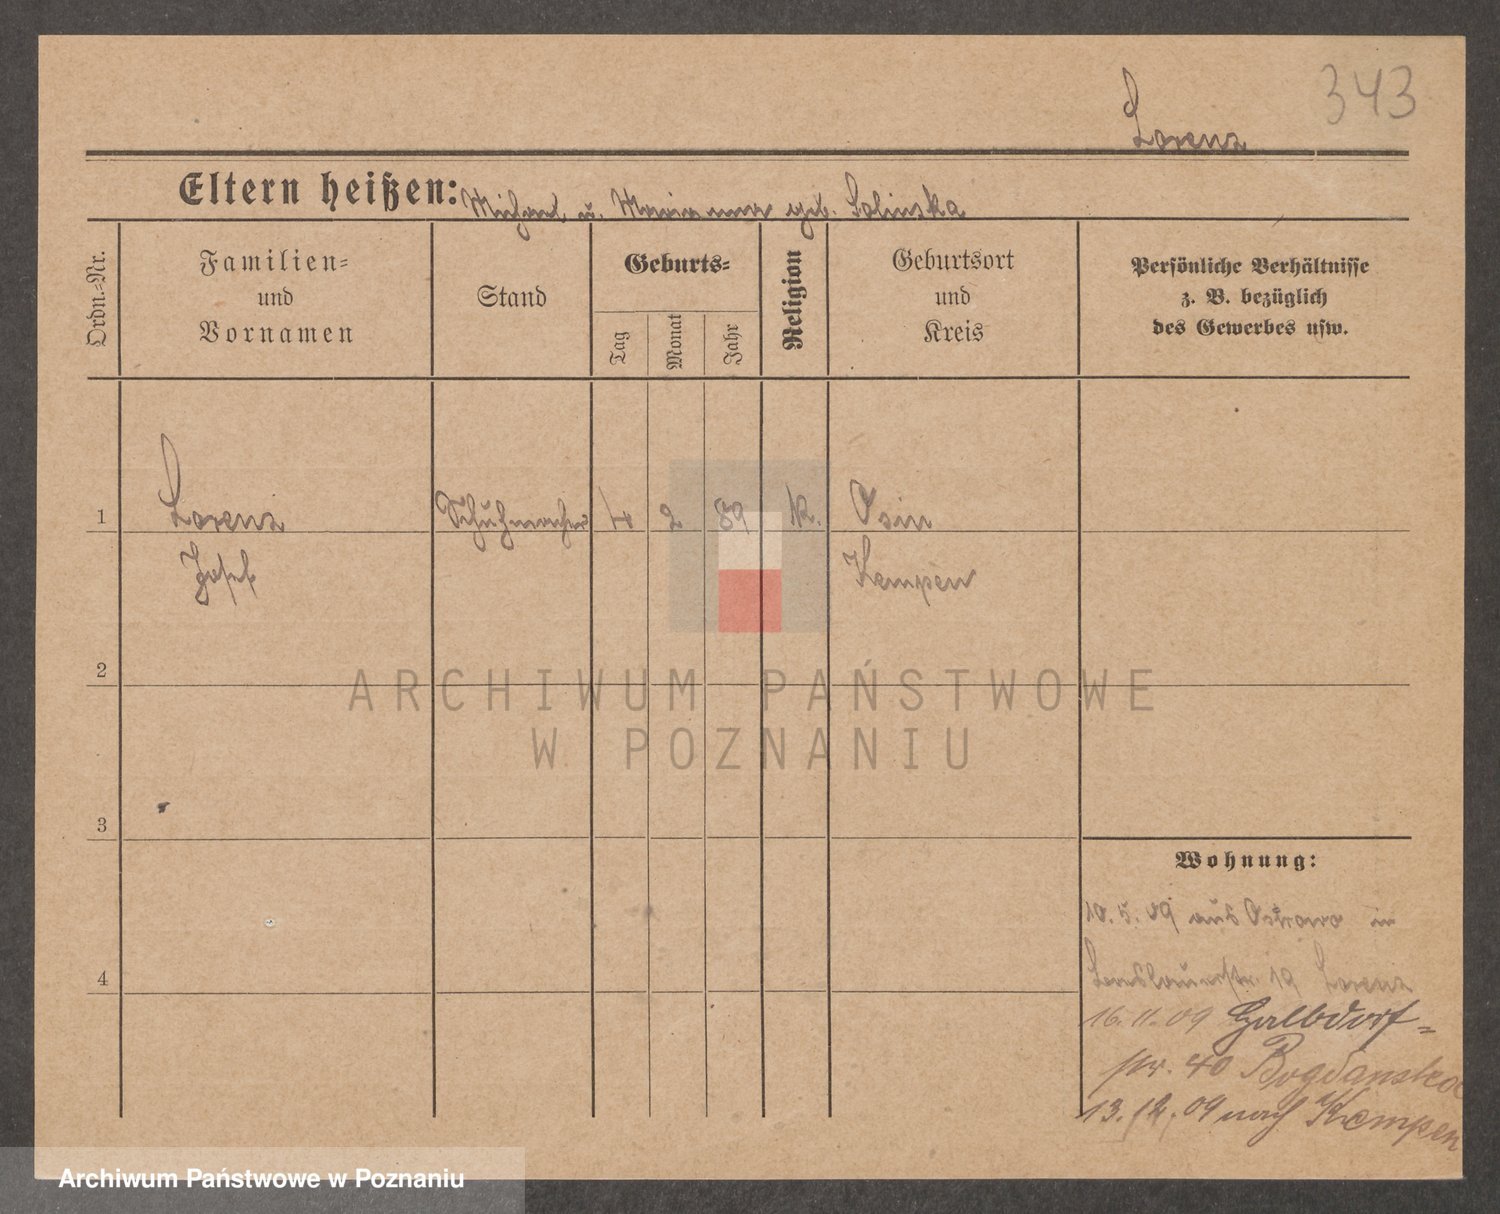 343
Lorenz
Eltern heißen: Michael u. Marianna geb. Solinska
Ordn.-Nr.
Familien-
und
Vornamen
Stand
Geburts-
Tag
Monat
Jahr
Religion
Geburtsort
und
Kreis
Persönliche Verhältnisse
z. B. bezüglich
des Gewerbes usw.
1
Lorenz
Schuhmacher
4
2
89
k.
Osin
Josef
Kempen
2
ARCHIWUM PAŃSTWOWE
W POZNANIU
3
Wohnung:
10. 5. 09 aus Ostrowo in
19 Lorenz
4
16. 11. 09 Halbdorf-
str. 40 Bogdanska
13. 12. 09 nach Kempen
Archiwum Państwowe w Poznaniu